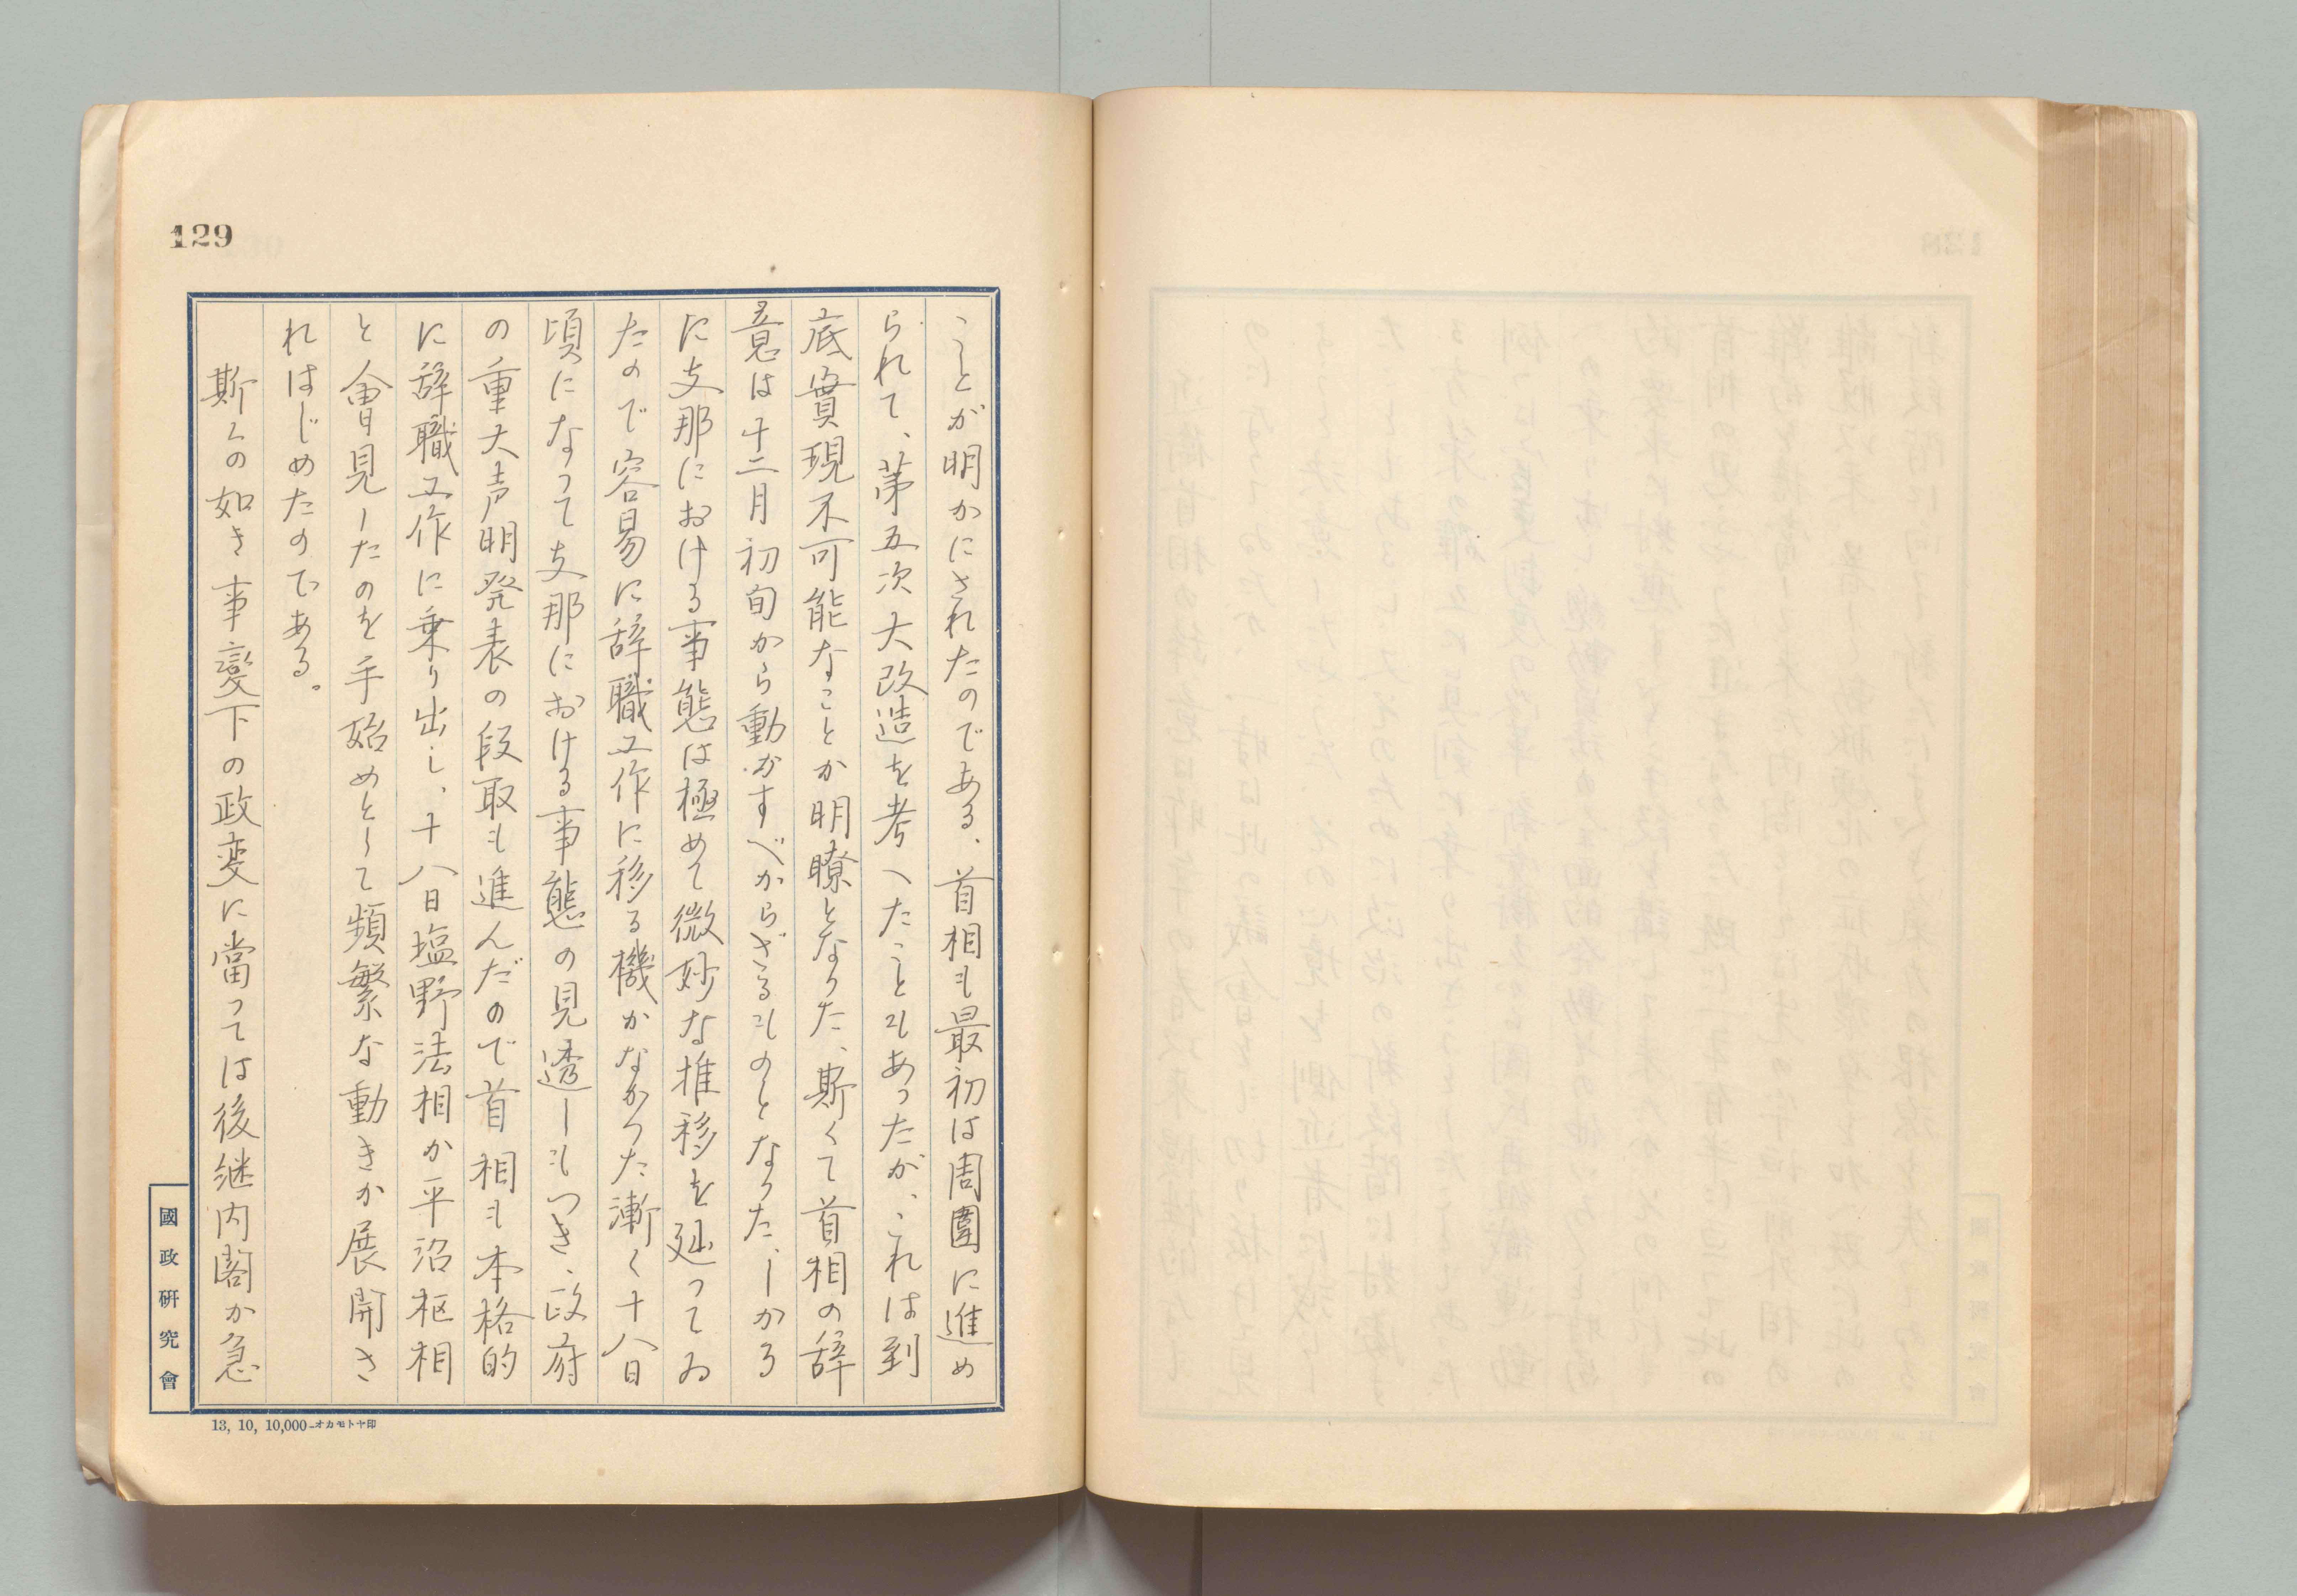 129
ことが明かにされたのである、首相も最初は周圍に進め
られて、第五次大改造を考へたこともあったが、これは到
底實現不可能なことか明瞭となった、斯くて首相の辞
意は十二月初旬から動かすべからざるものとなった、しかる
に支那における事態は極めて微妙な推移を廻ってゐ
たので容易に辞職工作に移る機かなかった漸く十八日
頃になって支那における事態の見透しもつき、政府
の重大声明発表の段取も進んだので首相も本格的
に辞職工作に乗り出し、十八日塩野法相か平沼枢相
と會見したのを手始めとして頻繁な動きか展開さ
れはじめたのである。
斯くの如き事變下の政変に當っては後継内閣か急
國政研究會
13, 10, 10,000-オカモトヤ印